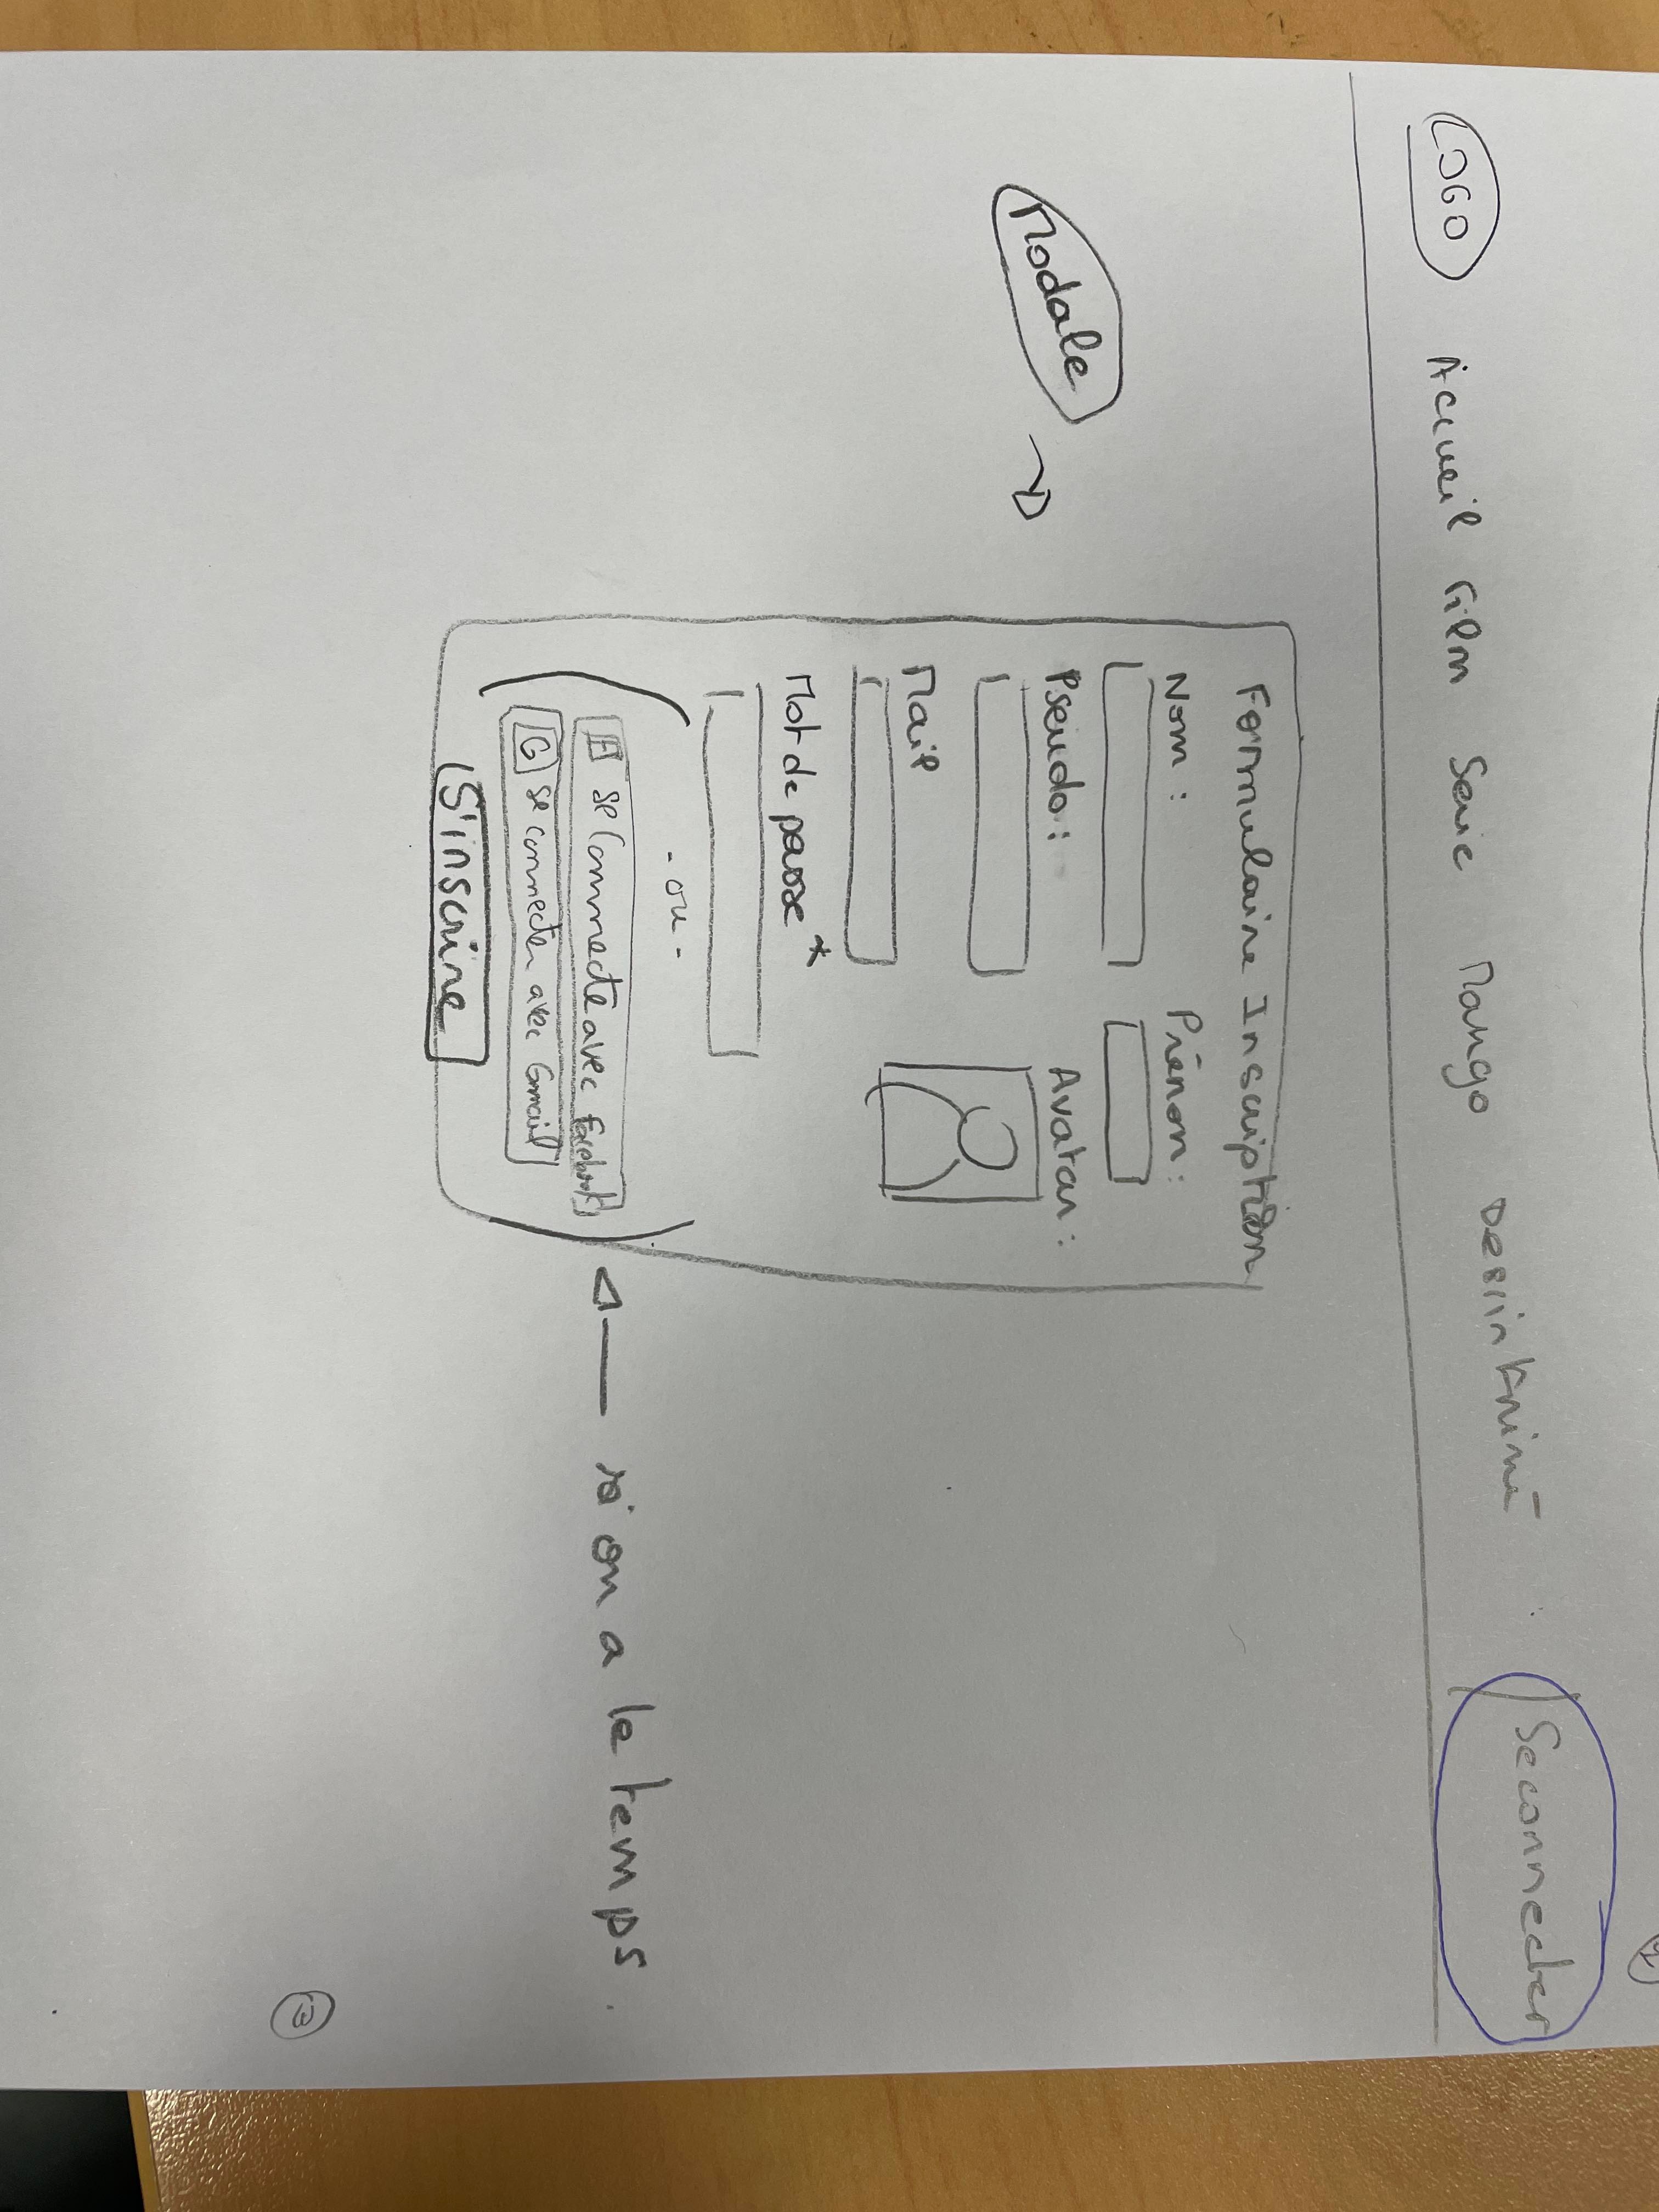 LOGO Accueil Film Serie Mango Dessin Animé Se connecter
Modale
Formulaire Inscription
Nom : Prénom :
Pseudo : Avatar :
Mail
Mot de passe *
- ou -
F se Connecte avec facebook
G se connecter avec Gmail
si on a le temps.
S'inscrire
3